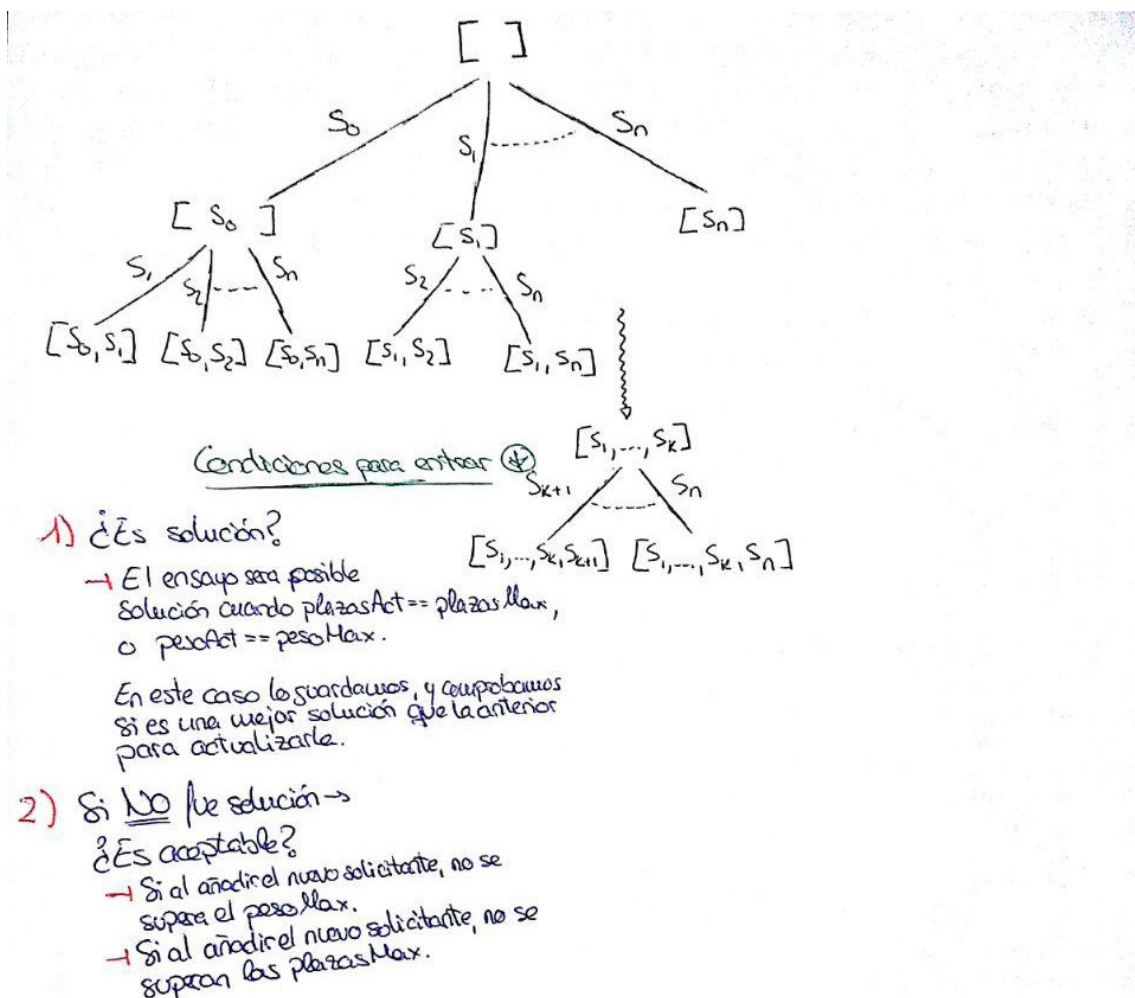 [ ]
S₀ S₁ Sₙ
[ S₀ ] [S₁] [Sₙ]
S₁ S₂ Sₙ S₂ Sₙ
[S₀,S₁] [S₀,S₂] [S₀,Sₙ] [S₁,S₂] [S₁,Sₙ]
[S₁,...,Sₖ]
Condiciones para entrar
Sₖ₊₁ Sₙ
[S₁,...,Sₖ,Sₖ₊₁] [S₁,...,Sₖ,Sₙ]
1) ¿Es solución?
→ El ensayo sera posible
solución cuando plazasAct == plazasMax,
o pesoAct == pesoMax.
En este caso lo guardamos, y comprobamos
si es una mejor solución que la anterior
para actualizarla.
2) Si NO fue solución →
¿Es aceptable?
→ Si al añadir el nuevo solicitante, no se
supera el pesoMax.
→ Si al añadir el nuevo solicitante, no se
superan las plazasMax.